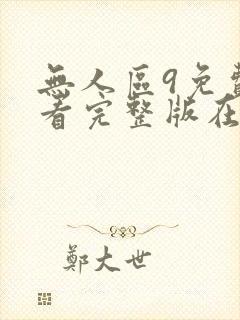 無人區9免費
看完整版在
鄭大世